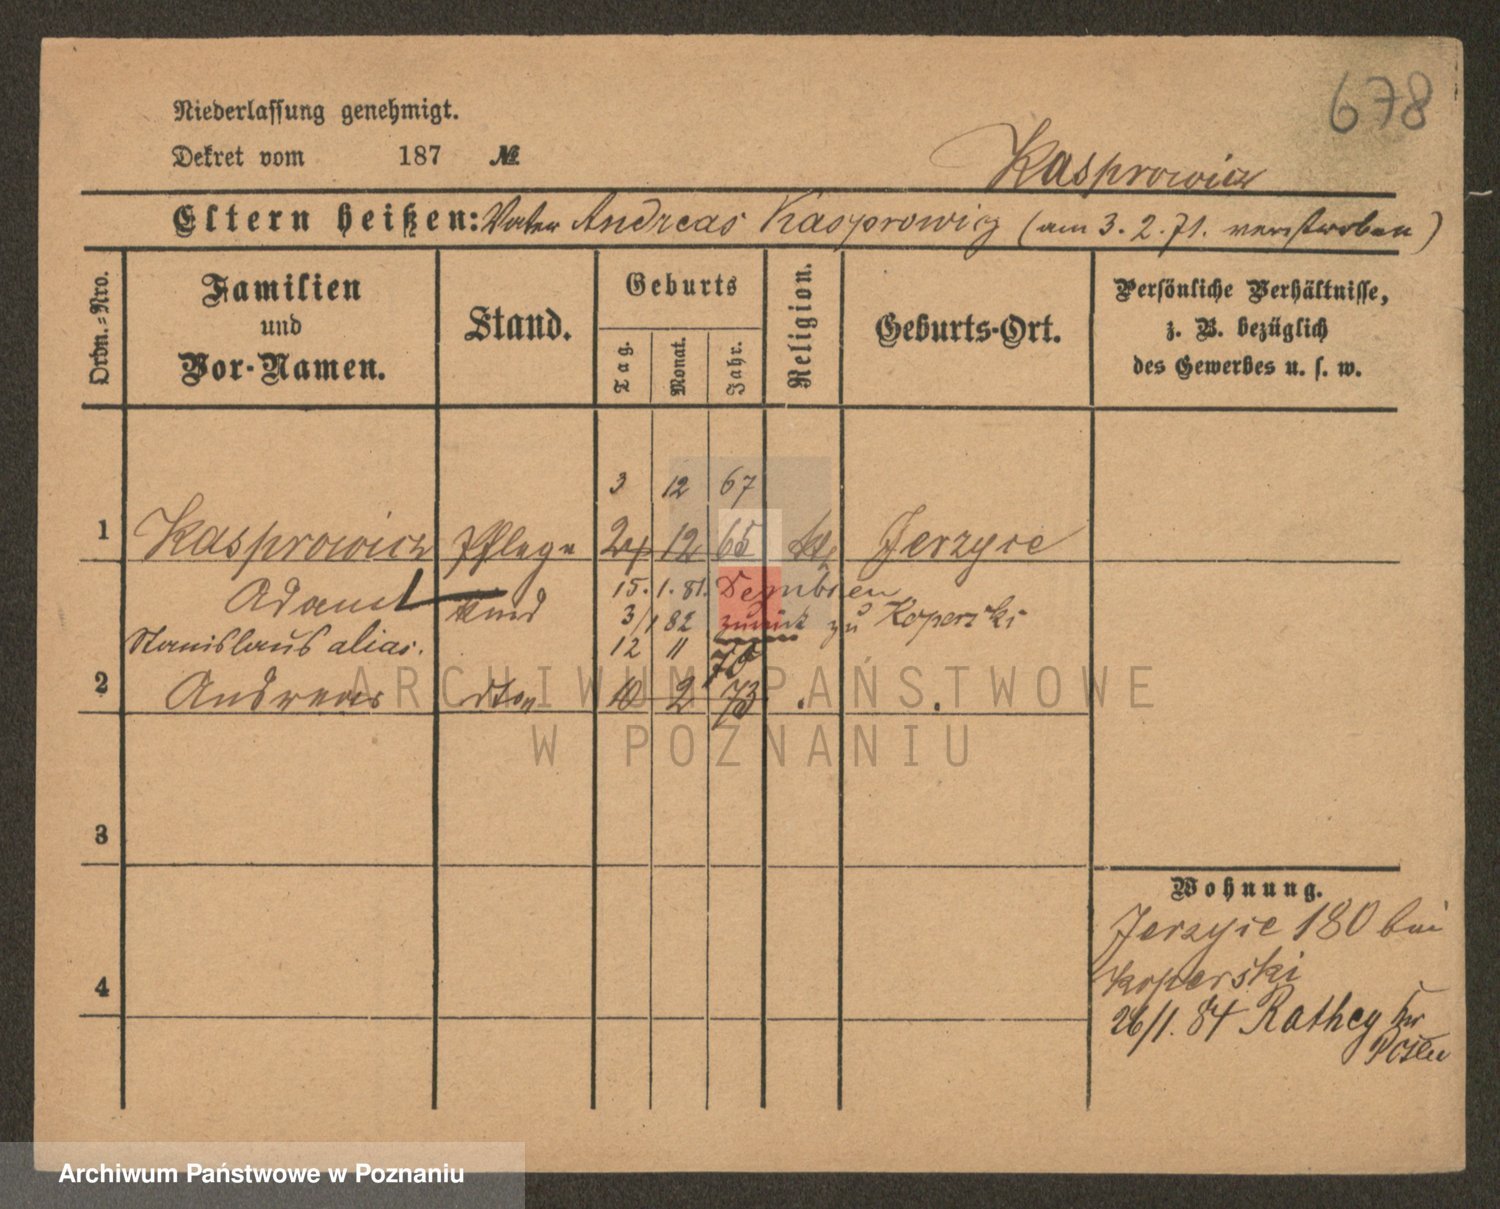 678
Niederlassung genehmigt.
Dekret vom 187 №
Kasprowicz
Eltern heißen: Vater Andreas Kasprowicz (am 3. 2. 71. verstorben)
Ordn.-Nro.
Familien und Vor-Namen.
Stand.
Geburts
Tag.
Monat.
Jahr.
Religion.
Geburts-Ort.
Persönliche Verhältnisse, z. B. bezüglich des Gewerbes u. s. w.
3 12 67
1 Kasprowicz Pflege 24 12 65 Jerzyce
Adam kind 15. 1. 81. Dembsen
3/1 82 zurück zu Koperski
Stanislaus alias. 12 11 70
2 Andreas dto 10 2 73
3
4
Wohnung.
Jerzyce 180 bei
Koperski
26/1. 84 Rathey
Posen
ARCHIWUM PAŃSTWOWE
W POZNANIU
Archiwum Państwowe w Poznaniu